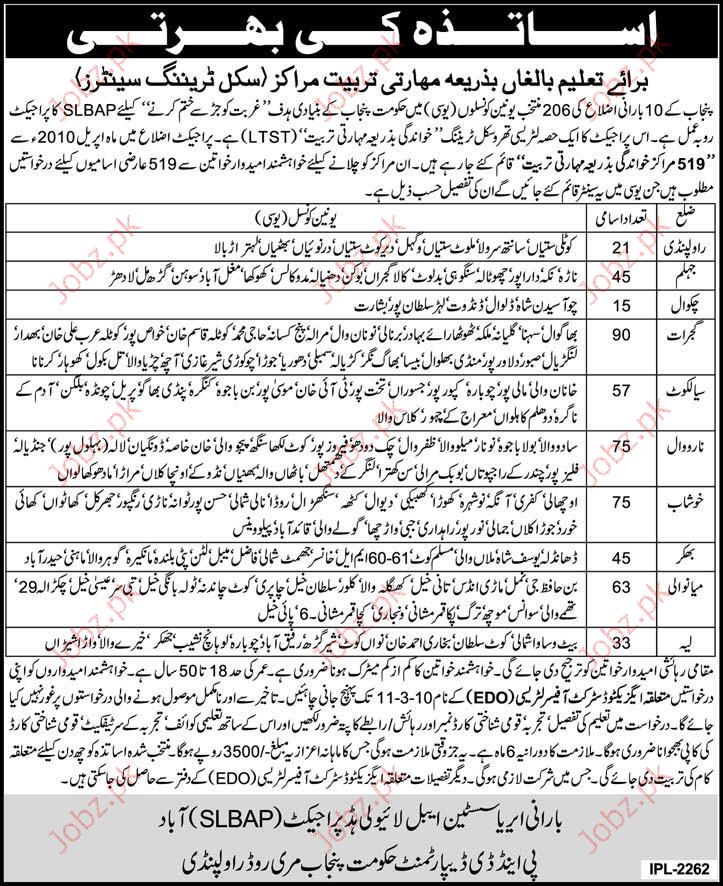 اساتذہ کی بھرتی
برائے تعلیم بالغاں بذریعہ مہارتی تربیت مراکز (سکل ٹریننگ سینٹرز)
پنجاب کے 10 بارانی اضلاع کی 206 منتخب یونین کونسلوں (یوسی) میں حکومت پنجاب کے بنیادی ہدف ”غربت کو جڑ سے ختم کرنے“ کیلئے SLBAP کا پراجیکٹ
روبہ عمل ہے۔ اس پراجیکٹ کا ایک حصہ لٹریسی تھرو سکل ٹریننگ ”خواندگی بذریعہ مہارتی تربیت“ (LTST) ہے۔ پراجیکٹ اضلاع میں ماہ اپریل 2010ء سے
”519 مراکز خواندگی بذریعہ مہارتی تربیت“ قائم کئے جا رہے ہیں۔ ان مراکز کو چلانے کیلئے خواہشمند امیدوار خواتین سے 519 عارضی اسامیوں کیلئے درخواستیں
مطلوب ہیں جن یوسی میں یہ سینٹر قائم کئے جائیں گے ان کی تفصیل حسب ذیل ہے۔
ضلع تعداد اسامی یونین کونسل (یوسی)
راولپنڈی 21 کوٹلی ستیاں‘ سانتھ سرولا‘ ملوٹ ستیاں‘ وگہل‘ دیر کوٹ ستیاں‘ درنوئیاں‘ بھتیاں‘ لہتراڑ بالا
جہلم 45 ناڑہ‘ نکہ‘ داراپور‘ چھوٹالہ‘ سنگوہی‘ بدلوٹ‘ کالا گجراں‘ بوکن‘ دھنیالہ‘ مدوکالس‘ کھوکھا‘ مغل آباد‘ سوہن‘ گڑھ محل‘ لادھڑ
چکوال 15 چوآسیدن شاہ‘ ڈلوال‘ ڈنڈوت‘ لہڑ سلطان پور‘ بشارت
گجرات 90 بھاگوال‘ سہنا‘ گلیانہ‘ ملکہ‘ ٹھوٹھا رائے بہادر‘ برنالی‘ نونان وال‘ مرالہ‘ پنج کسانہ‘ حاجی محمد‘ کوٹلہ قاسم خان‘ خواص پور‘ کوٹلہ عرب علی خان‘ بھدار
لنگڑیال‘ صبور‘ دلاور پور‘ منڈی بھلوال‘ بیسا‘ بھاگ نگر‘ کڑیالہ‘ سمبلی‘ دھوریا‘ جوڑا‘ چوکوڑی شیر غازی‘ آچھ‘ چڑیاولا‘ تل بکول‘ کوہار‘ کرنانا
سیالکوٹ 57 خانان والی‘ مالی پور‘ چوبارہ‘ کپور پور‘ جسوراں‘ تخت پور‘ ٹی آئی خان‘ موسیٰ پور‘ بن باجوہ‘ کنگرہ‘ پنڈی بھاگو‘ پریل‘ چونڈہ‘ بلگن‘ آدم کے
ناگرہ‘ دولم کاہلواں‘ معراج کے‘ چہور‘ کلاس والا
نارووال 75 سادووالا‘ بولا باجوہ‘ نونار‘ میلووالا‘ ظفروال‘ چک دودھو‘ فیروز پور‘ کوٹ لکھا سنگھ‘ پیجووالی‘ خان خاصہ‘ ڈونگیاں‘ لالہ (بہلول پور)‘ جنڈیالہ‘
فلیز پور‘ چندر کے راجپوتاں‘ بوبک مرالی‘ سن کھترا‘ لنگر کے‘ دھمتھل‘ باٹھاں والہ‘ بھٹیاں‘ نڈوکے‘ اونچا کلاں‘ مراڑا‘ مادھو کالواں
خوشاب 75 اوچھالی‘ کفری‘ آنگہ‘ نوشہرہ‘ کھوڑا‘ کھبیکی‘ دیوال‘ کٹھہ سنگھرال‘ روڈا‘ نالی شمالی‘ حسن پور ٹوانہ‘ ناڑی‘ رنگپور‘ جھرکل‘ کھاٹواں‘ کھائی
خورد‘ جوڑا کلاں‘ جمالی‘ نور پور‘ راہداری‘ جبی‘ واڑچھا‘ گولے والی‘ قائد آباد‘ پیلووینس
بھکر 45 ڈھانڈلہ‘ یوسف شاہ‘ ملاں والی‘ مسلم کوٹ‘ 60-61 ایم ایل‘ خانسر‘ جھمٹ شمالی‘ فاضل‘ میبل‘ لٹن‘ پتی بلندہ‘ مانکیرہ‘ گوہر والا‘ ماہنی‘ حیدر آباد
میانوالی 63 بن حافظ جی‘ نمل‘ ماڑی انڈس‘ تانی خیل‘ کھگلہ والا‘ کلور‘ سلطان خیل‘ چاپری‘ کوٹ چاندنہ‘ ٹولہ بانگی خیل‘ تبی سر‘ عیسیٰ خیل‘ چکڑالہ‘ 29
تھمے والی‘ سوانس‘ موچھ‘ ترگ‘ پکا قمر مشانی‘ ونجاری‘ کچا قمر مشانی۔6‘ پائی خیل
لیہ 33 بیٹ وساوا شمالی‘ کوٹ سلطان‘ بخاری احمد خان‘ نواں کوٹ‘ شیر گڑھ‘ رفیق آباد‘ چوبارہ‘ لوہانچ نشیب‘ جھکر‘ خیرے والا‘ واڑا شیڑاں
مقامی رہائشی امیدوار خواتین کو ترجیح دی جائے گی۔ خواہشمند خواتین کا کم از کم میٹرک ہونا ضروری ہے۔ عمر کی حد 18 تا 50 سال ہے۔ خواہشمند امیدواروں کو اپنی
درخواستیں متعلقہ ایگزیکٹو ڈسٹرکٹ آفیسر لٹریسی (EDO) کے نام 10-3-11 تک پہنچ جانی چاہئیں۔ تاخیر سے اور نامکمل موصول ہونے والی درخواستوں پر غور نہیں کیا
جائے گا۔ درخواست میں تعلیم کی تفصیل‘ تجربہ‘ قومی شناختی کارڈ نمبر اور رہائش/رابطے کا پتہ ضرور لکھیں اور اس کے ساتھ تعلیمی کوائف‘ تجربہ کے سرٹیفکیٹ‘ قومی شناختی کارڈ
کی کاپی بھجوانا ضروری ہوگا۔ ملازمت کا دورانیہ 6 ماہ ہے۔ یہ جزوقتی ملازمت ہوگی جس کا ماہانہ اعزازیہ مبلغ -/3500 روپے ہوگا۔ منتخب شدہ اساتذہ کو چھ دن کیلئے متعلقہ
کام کی تربیت دی جائے گی۔ جس میں شرکت لازمی ہوگی۔ دیگر تفصیلات متعلقہ ایگزیکٹو ڈسٹرکٹ آفیسر لٹریسی (EDO) کے دفتر سے حاصل کی جا سکتی ہیں۔
بارانی ایریا سسٹین ایبل لائیولی ہڈ پراجیکٹ (SLBAP) آباد
پی اینڈ ڈی ڈیپارٹمنٹ حکومت پنجاب مری روڈ راولپنڈی
IPL-2262
Jobz.pk